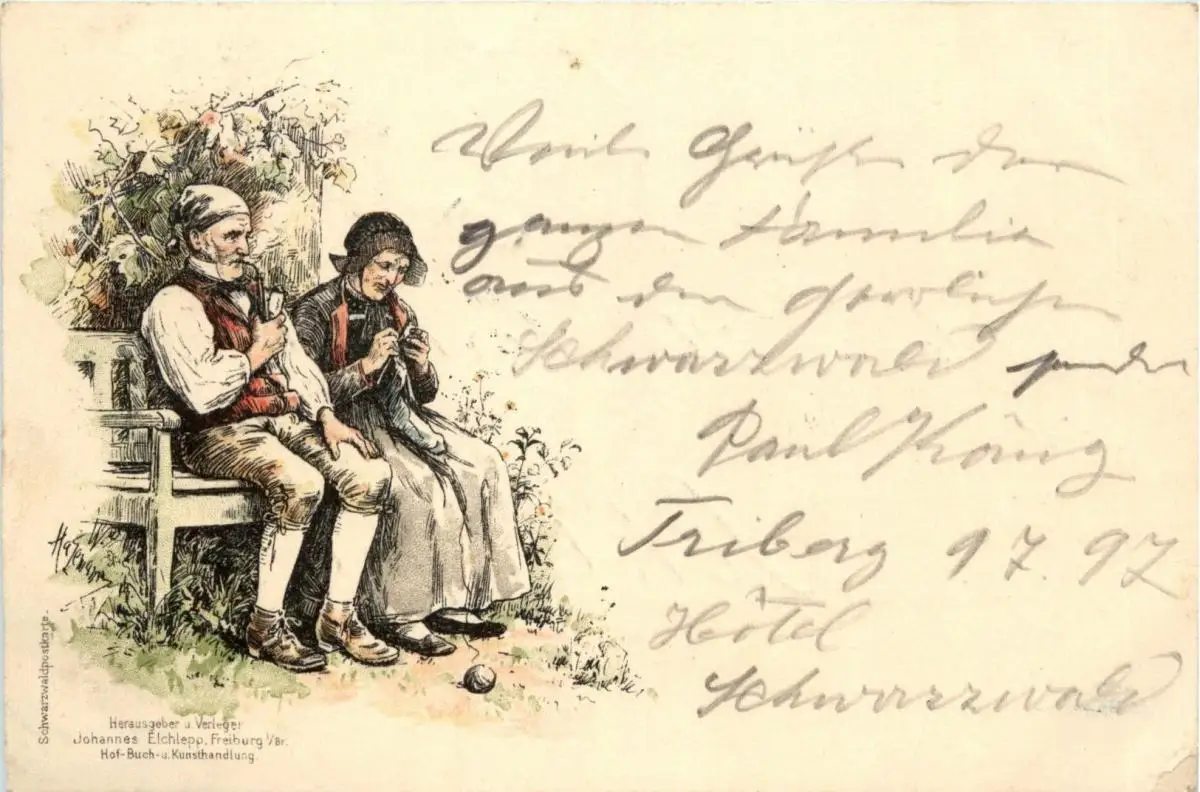 Viele Grüße der
ganzen Familie
aus dem herrlichen
Schwarzwald sendet
Paul König
Triberg 9 7. 97
Hôtel
Schwarzwald
Schwarzwaldpostkarte.
Herausgeber u. Verleger
Johannes Elchlepp, Freiburg i/Br.
Hof-Buch-u. Kunsthandlung.